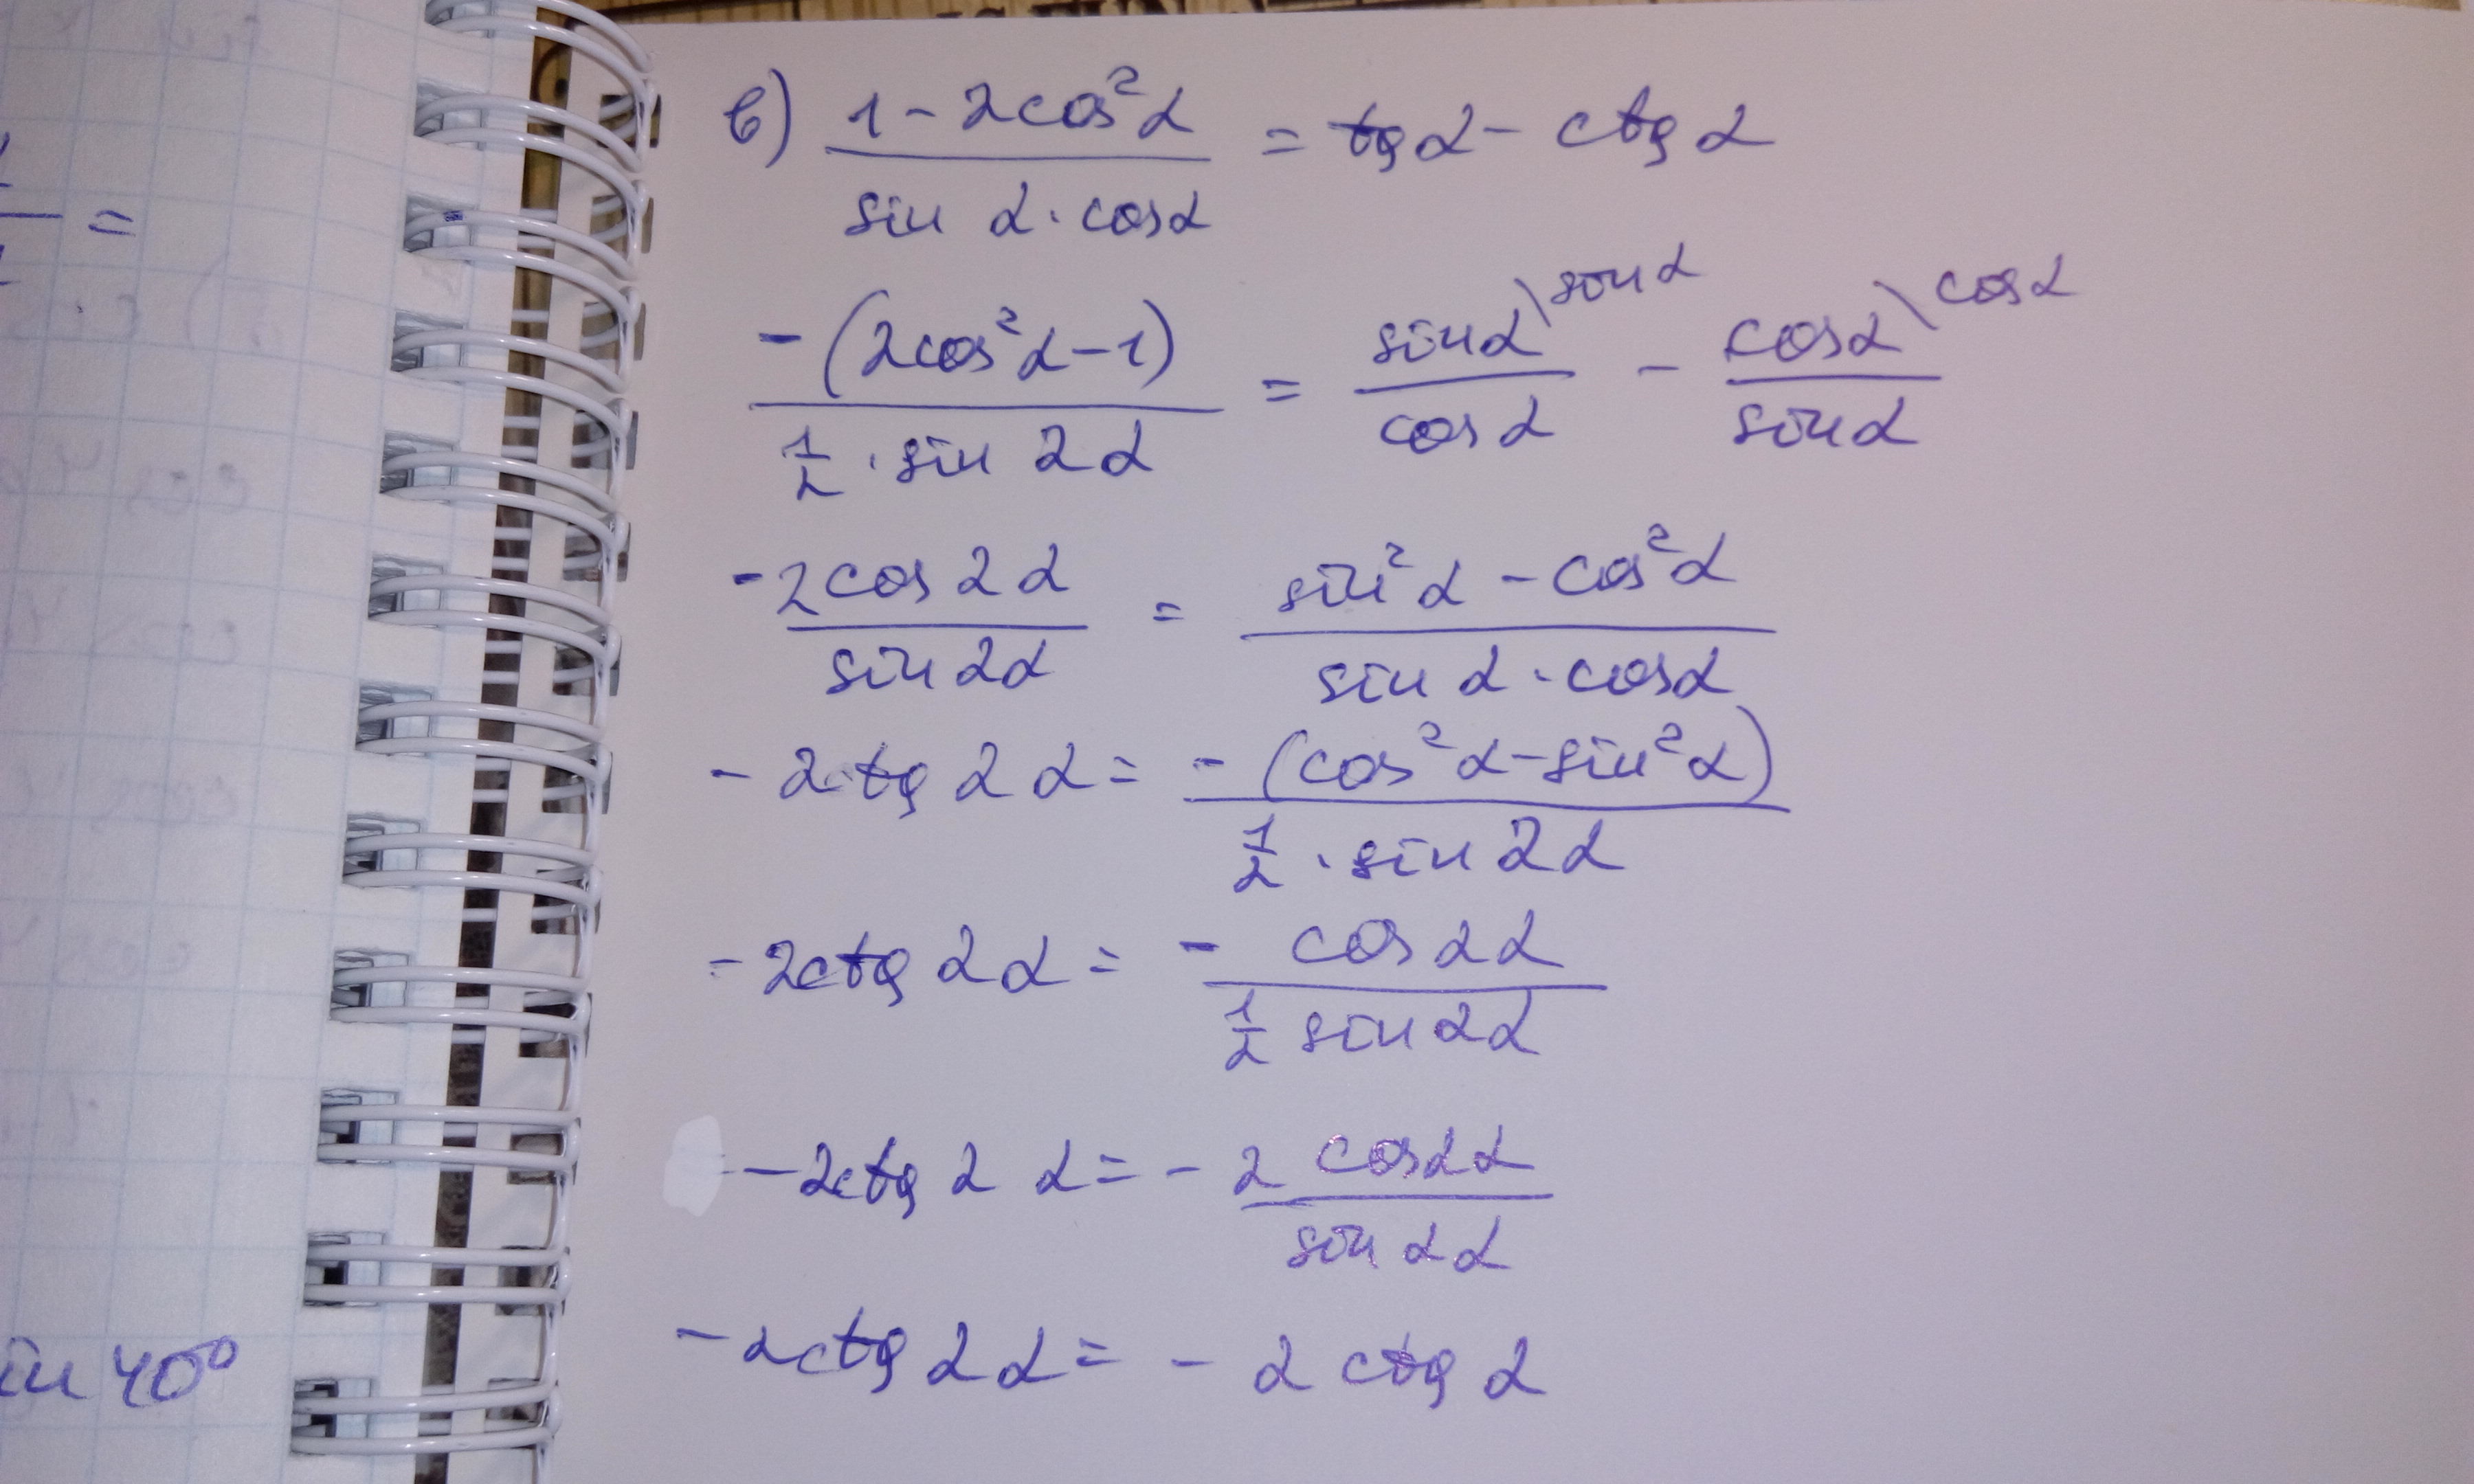 в) (1 - 2cos²α)/(sin α · cos α) = tg α - ctg α
(-(2cos²α - 1))/(1/2 · sin 2α) = sin α/cos α \sin α - cos α/sin α \cos α
(-2cos 2α)/(sin 2α) = (sin²α - cos²α)/(sin α · cos α)
-2ctg 2α = (-(cos²α - sin²α))/(1/2 · sin 2α)
-2ctg 2α = (- cos 2α)/(1/2 sin 2α)
-2ctg 2α = - (2 cos 2α)/(sin 2α)
-2ctg 2α = - 2 ctg α
=
in 40°